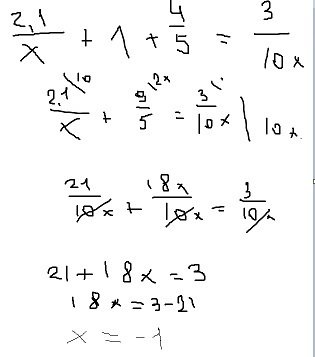 2,1/x + 1 + 4/5 = 3/10x
2,1\10/x + 9\2x/5 = 3\1/10x | 10x.
21/10x + 18x/10x = 3/10x
21 + 18x = 3
18x = 3-21
x = -1